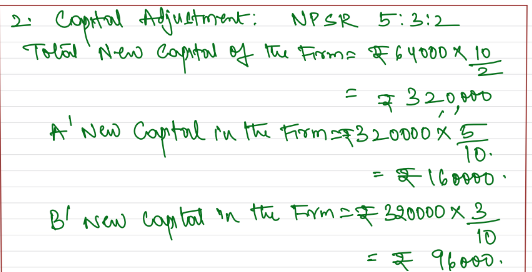 2. Capital Adjustment: NPSR 5:3:2
Total New Capital of the Firm = ₹64000 × 10/2
= ₹320,000
A' New Capital in the Firm = ₹320000 × 5/10.
= ₹160000.
B' New Capital in the Firm = ₹320000 × 3/10
= ₹96000.